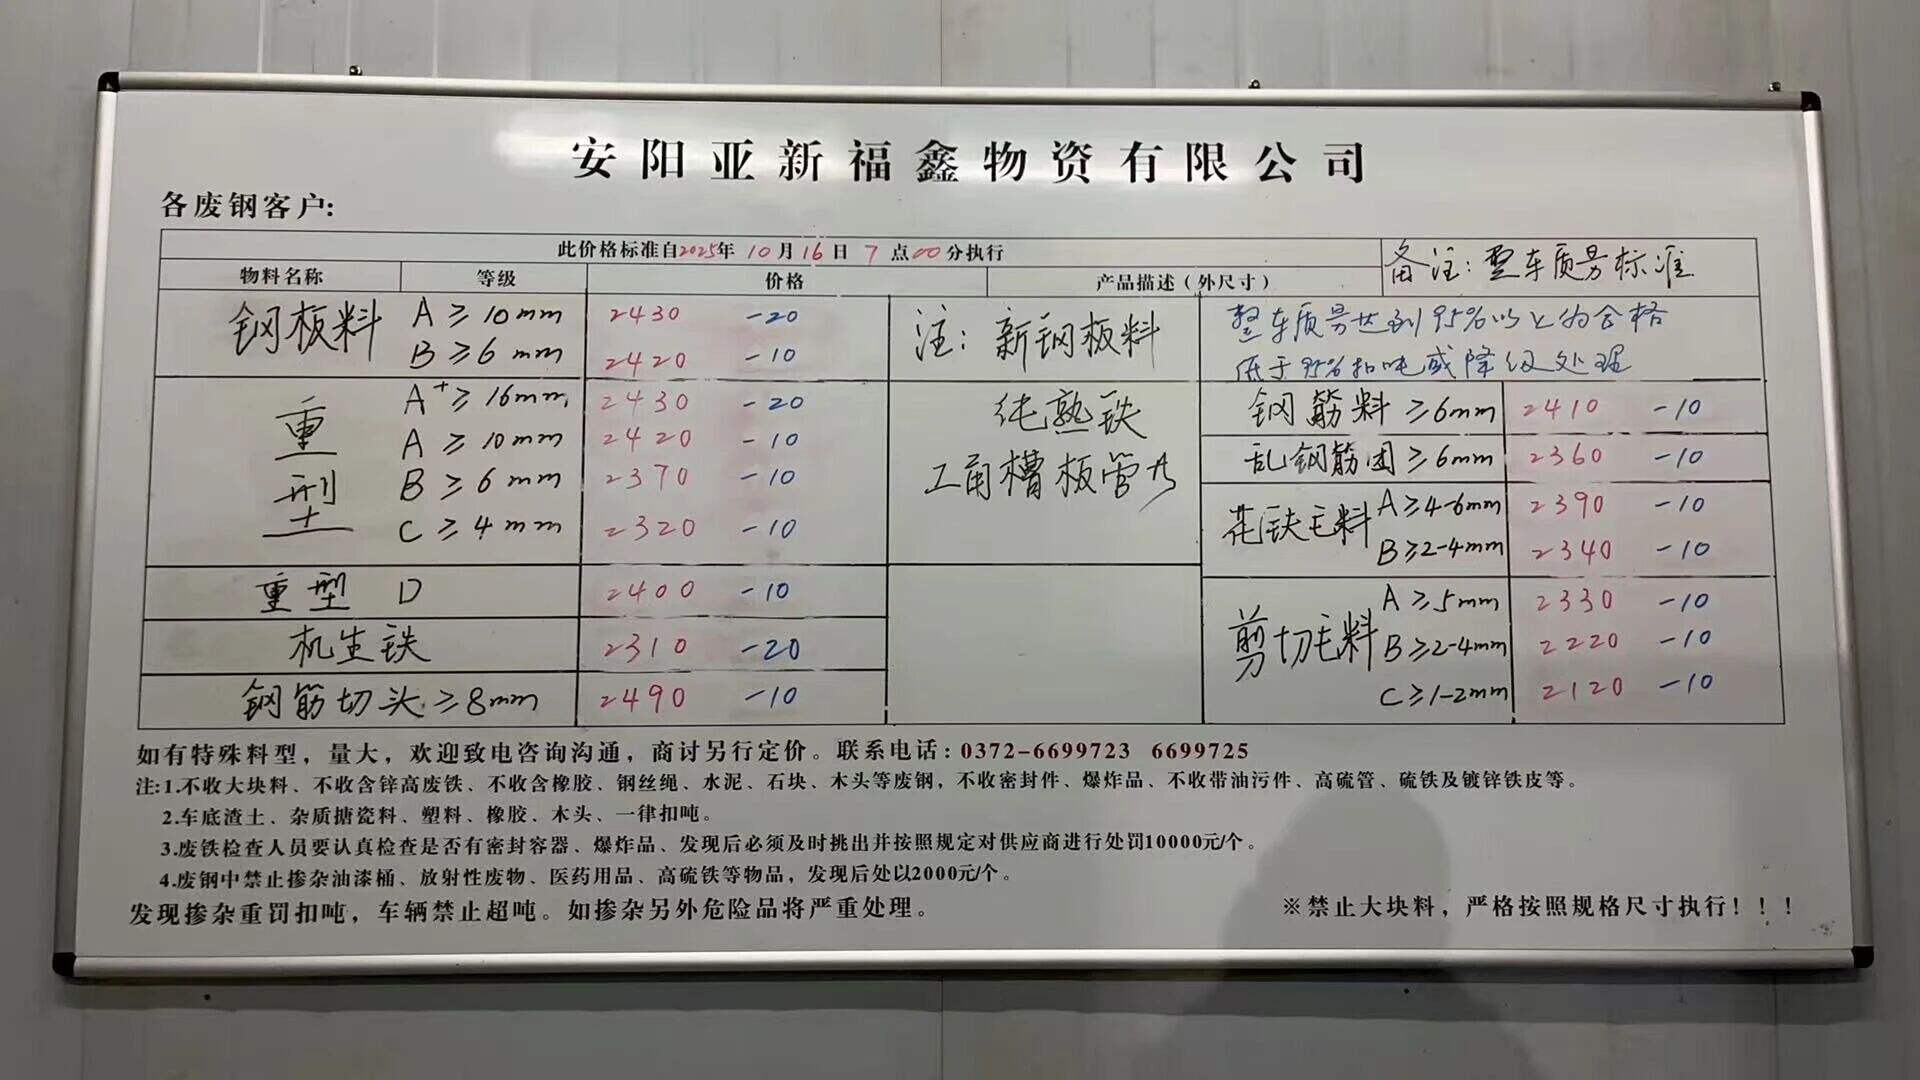 安阳亚新福鑫物资有限公司
各废钢客户:
此价格标准自2025年 10月16日 7点00分执行
备注:整车质量标准
物料名称 等级 价格 产品描述（外尺寸）
钢板料 A≥10mm 2430 -20
B≥6mm 2420 -10
注: 新钢板料
整车质量达到95%以上为合格
低于95%扣吨或降级处理
重型 A+≥16mm 2430 -20
A≥10mm 2420 -10
B≥6mm 2370 -10
C≥4mm 2320 -10
纯熟铁
工角槽板管
重型 D 2400 -10
机生铁 2310 -20
钢筋切头≥8mm 2490 -10
钢筋料≥6mm 2410 -10
乱钢筋团≥6mm 2360 -10
花铁毛料 A≥4-6mm 2390 -10
B≥2-4mm 2340 -10
剪切毛料 A≥5mm 2330 -10
B≥2-4mm 2220 -10
C≥1-2mm 2120 -10
如有特殊料型，量大，欢迎致电咨询沟通，商讨另行定价。联系电话:0372-6699723 6699725
注:1.不收大块料、不收含锌高废铁、不收含橡胶、钢丝绳、水泥、石块、木头等废钢，不收密封件、爆炸品、不收带油污件、高硫管、硫铁及镀锌铁皮等。
2.车底渣土、杂质搪瓷料、塑料、橡胶、木头、一律扣吨。
3.废铁检查人员要认真检查是否有密封容器、爆炸品、发现后必须及时挑出并按照规定对供应商进行处罚10000元/个。
4.废钢中禁止掺杂油漆桶、放射性废物、医药用品、高硫铁等物品，发现后处以2000元/个。
发现掺杂重罚扣吨，车辆禁止超吨。如掺杂另外危险品将严重处理。
※禁止大块料，严格按照规格尺寸执行！！！